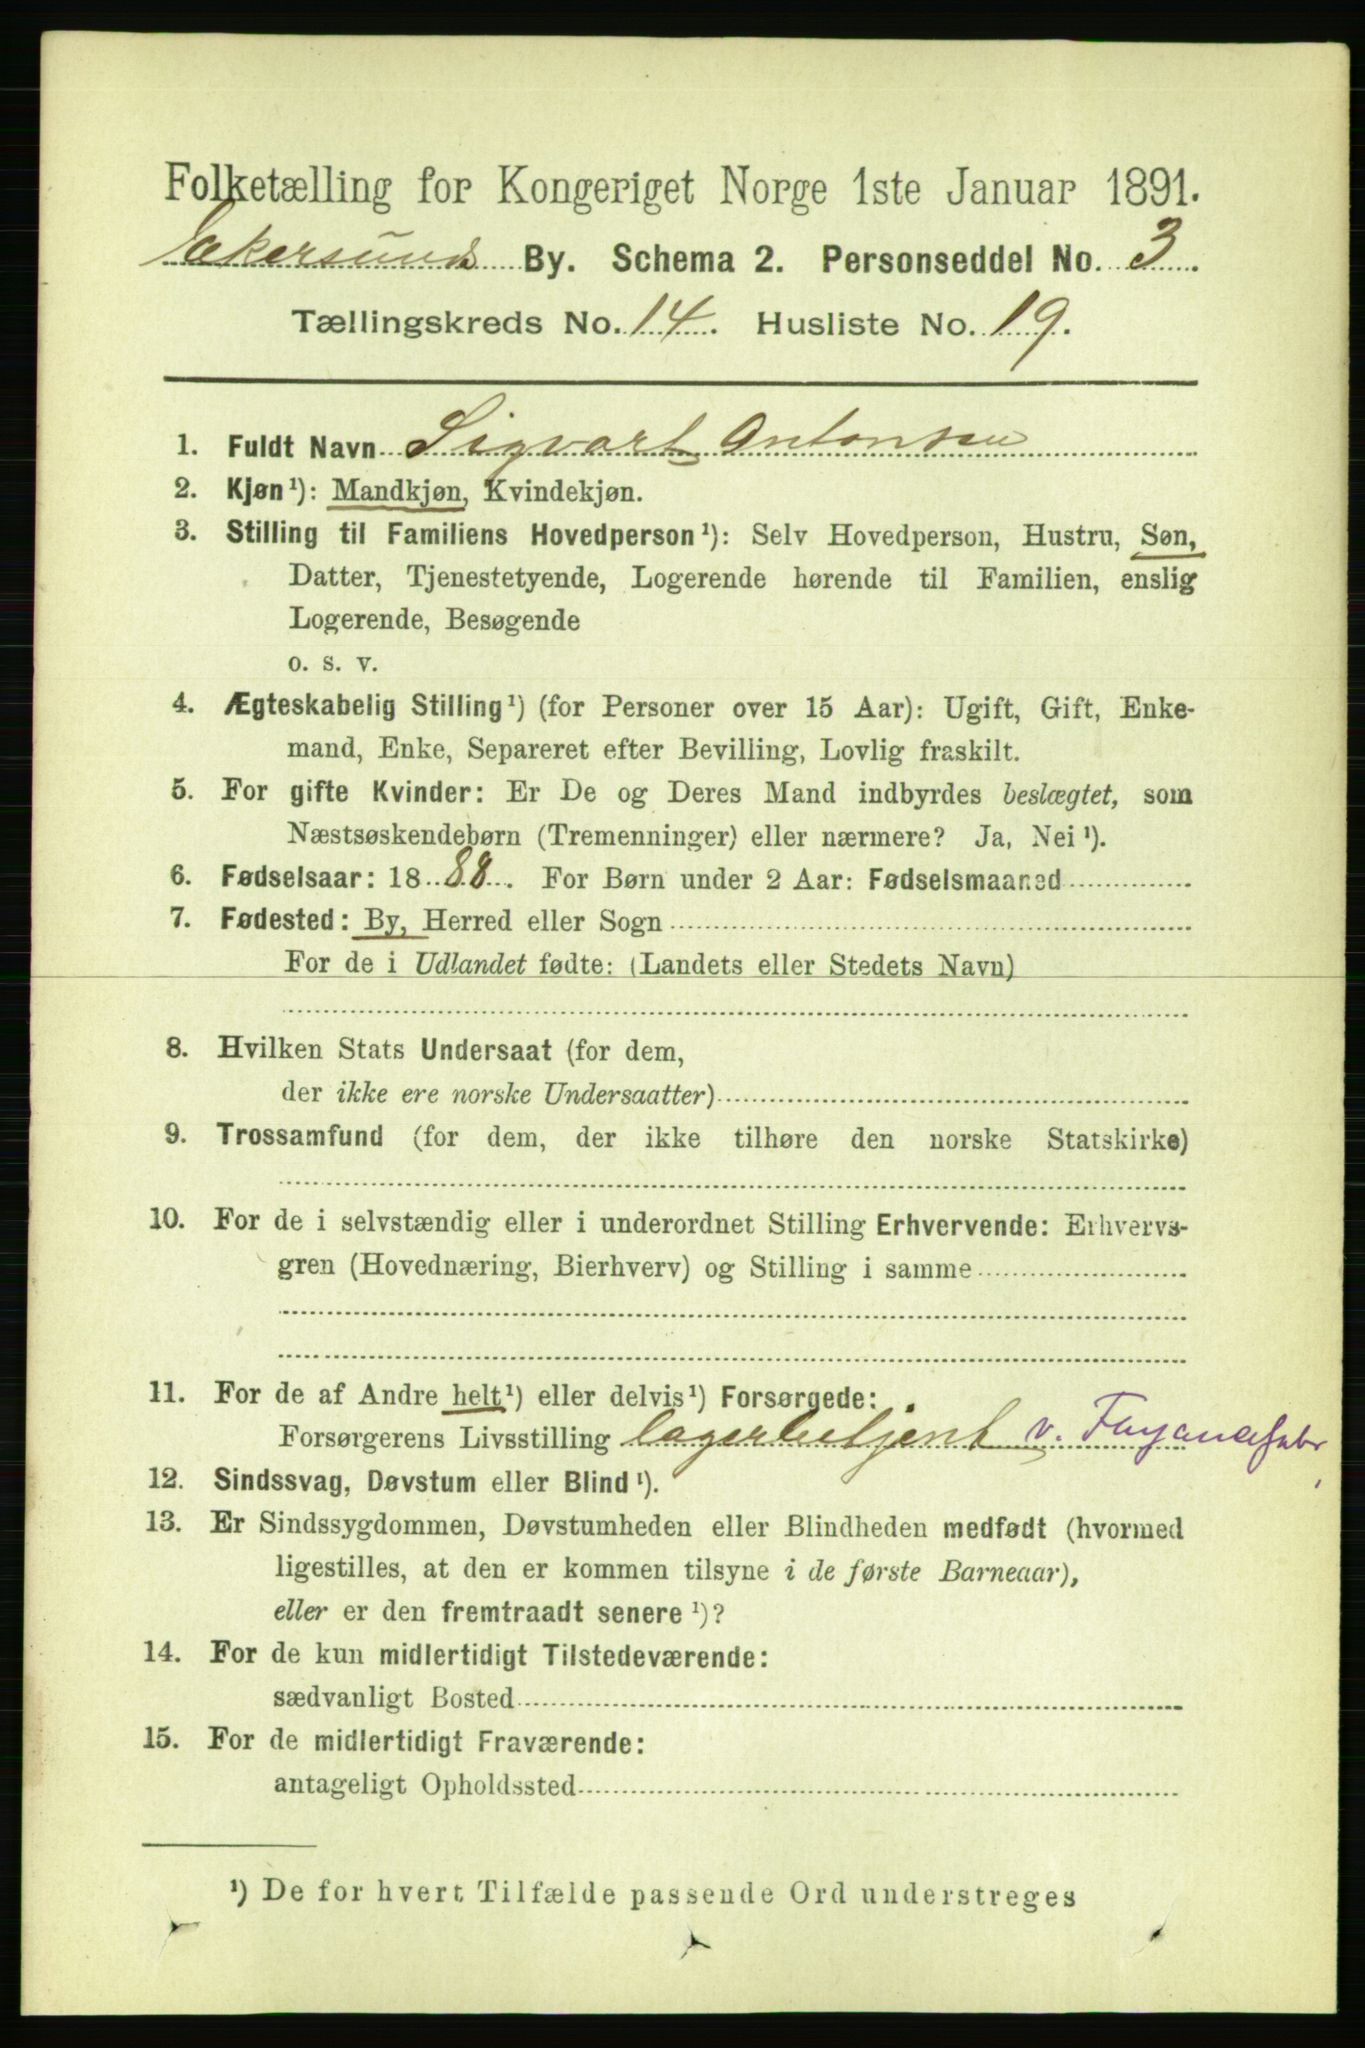 Folketælling for Kongeriget Norge 1ste Januar 1891.
Ekersund By. Schema 2. Personseddel No. 3.
Tællingskreds No. 14. Husliste No. 19.
1. Fuldt Navn Sigvart Antonsen
2. Kjøn¹): Mandkjøn, Kvindekjøn.
3. Stilling til Familiens Hovedperson¹): Selv Hovedperson, Hustru, Søn,
Datter, Tjenestetyende, Logerende hørende til Familien, enslig
Logerende, Besøgende
o. s. v.
4. Ægteskabelig Stilling¹) (for Personer over 15 Aar): Ugift, Gift, Enke-
mand, Enke, Separeret efter Bevilling, Lovlig fraskilt.
5. For gifte Kvinder: Er De og Deres Mand indbyrdes beslægtet, som
Næstsøskendebørn (Tremenninger) eller nærmere? Ja, Nei¹).
6. Fødselsaar: 1888. For Børn under 2 Aar: Fødselsmaaned
7. Fødested: By, Herred eller Sogn
For de i Udlandet fødte: (Landets eller Stedets Navn)
8. Hvilken Stats Undersaat (for dem,
der ikke ere norske Undersaatter)
9. Trossamfund (for dem, der ikke tilhøre den norske Statskirke)
10. For de i selvstændig eller i underordnet Stilling Erhvervende: Erhvervs-
gren (Hovednæring, Bierhverv) og Stilling i samme
11. For de af Andre helt¹) eller delvis¹) Forsørgede:
Forsørgerens Livsstilling lagerbetjent v. Fayancefabr,
12. Sindssvag, Døvstum eller Blind¹).
13. Er Sindssygdommen, Døvstumheden eller Blindheden medfødt (hvormed
ligestilles, at den er kommen tilsyne i de første Barneaar),
eller er den fremtraadt senere¹)?
14. For de kun midlertidigt Tilstedeværende:
sædvanligt Bosted
15. For de midlertidigt Fraværende:
antageligt Opholdssted
¹) De for hvert Tilfælde passende Ord understreges